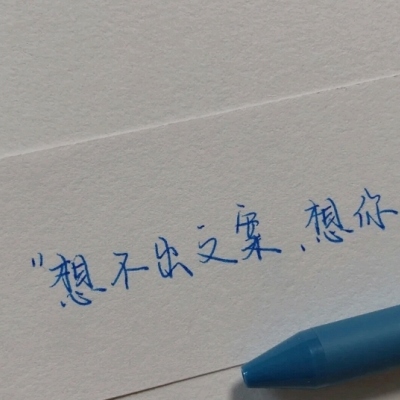 "想不出文案、想你